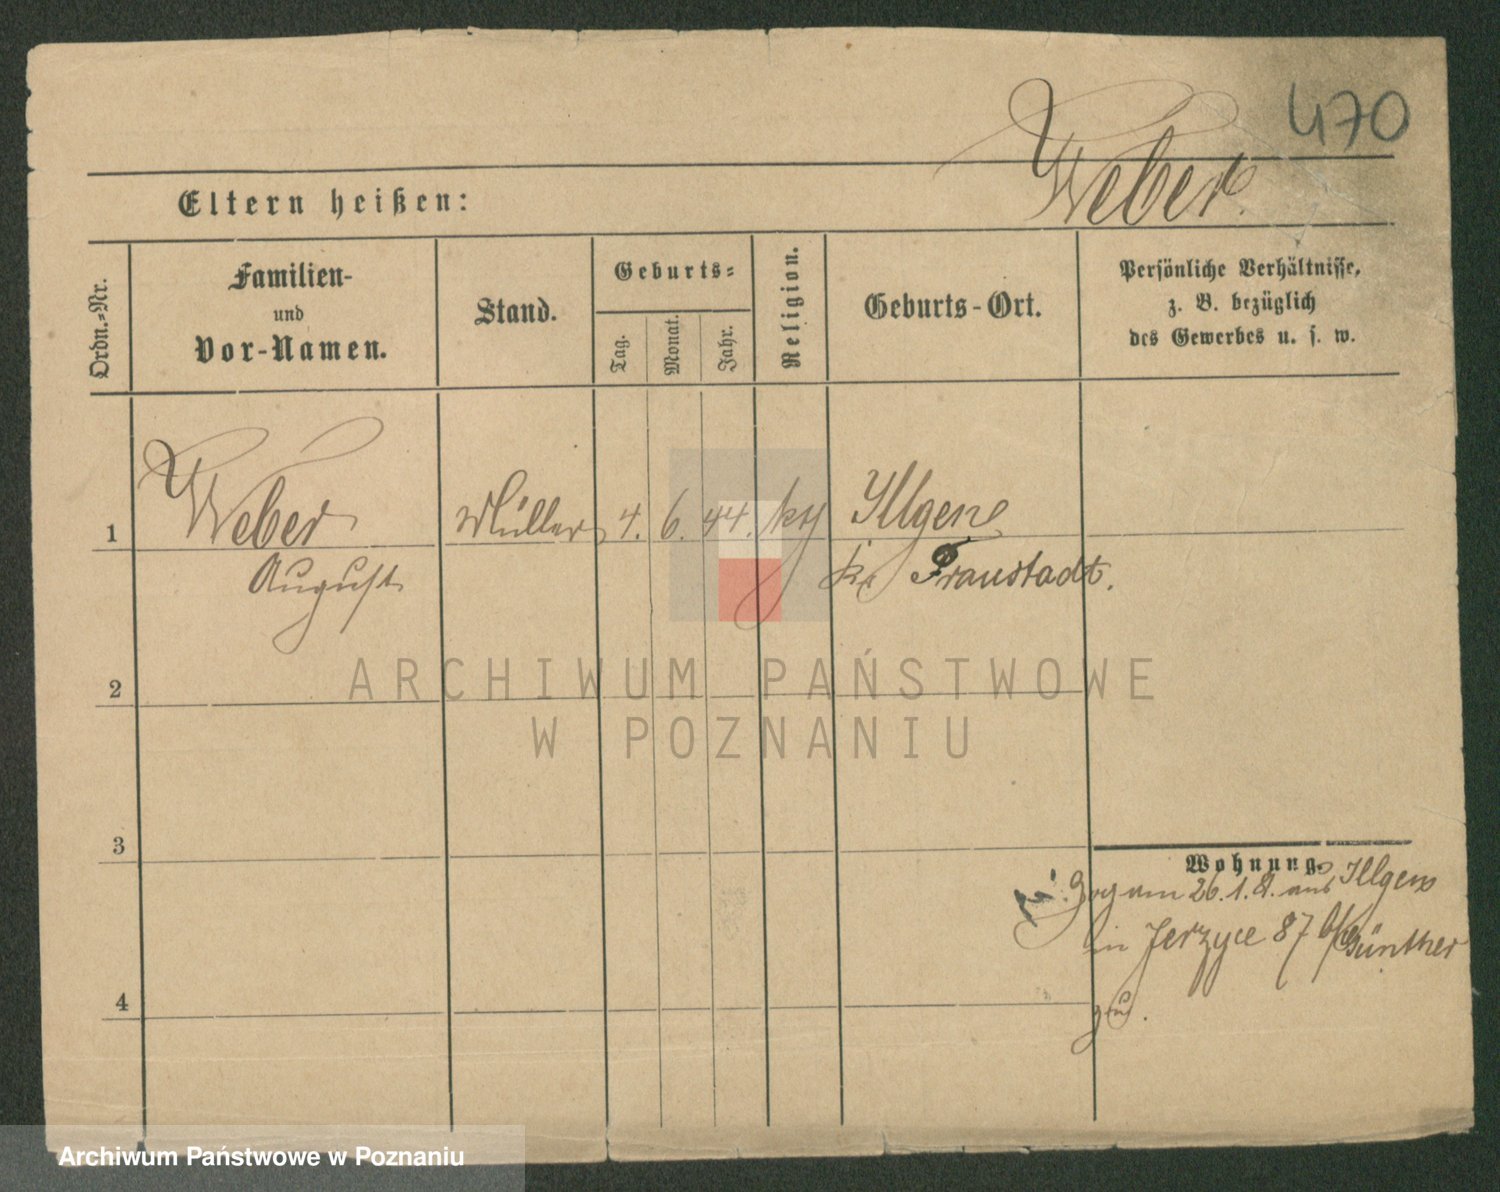 470
Weber.
Eltern heißen:
Ordn.-Nr.
Familien-
und
Vor-Namen.
Stand.
Geburts-
Tag.
Monat.
Jahr.
Religion.
Geburts-Ort.
Persönliche Verhältnisse,
z. B. bezüglich
des Gewerbes u. s. w.
1
Weber
August
Müller
4. 6. 44.
Illgen
Kr Fraustadt.
ARCHIWUM PAŃSTWOWE
W POZNANIU
2
3
4
Wohnung.
Zog am 26. 1. aus Illgen
in Jerzyce 87 Günther
zu.
Archiwum Państwowe w Poznaniu